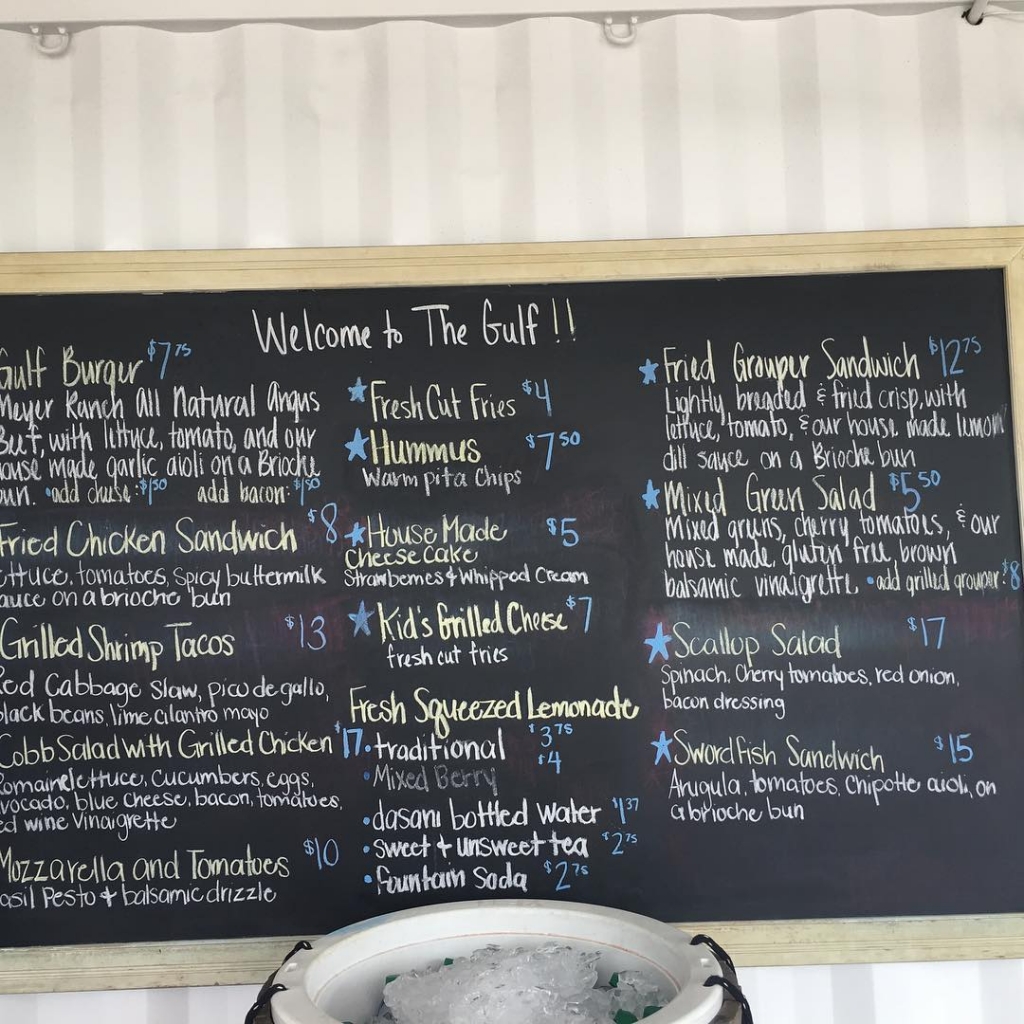 Welcome to The Gulf!!
Gulf Burger $7.75
Meyer Ranch All Natural Angus
Beef, with lettuce, tomato, and our
house made garlic aioli on a Brioche
bun. •add cheese: $1.50 add bacon: $1.50
Fried Chicken Sandwich $8
lettuce, tomatoes, spicy buttermilk
sauce on a brioche bun
Grilled Shrimp Tacos $13
Red Cabbage Slaw, pico de gallo,
black beans, lime cilantro mayo
Cobb Salad with Grilled Chicken $17
Romaine lettuce, cucumbers, eggs,
avocado, blue cheese, bacon, tomatoes,
red wine Vinaigrette
Mozzarella and Tomatoes $10
Basil Pesto + balsamic drizzle
★Fresh Cut Fries $4
★Hummus $7.50
Warm pita Chips
★House Made $5
Cheesecake
Strawberries & Whipped Cream
★Kid's Grilled Cheese $7
fresh cut fries
Fresh Squeezed Lemonade
•traditional $3.75
•Mixed Berry $4
•dasani bottled water $1.37
•sweet + unsweet tea $2.75
•fountain Soda $2.75
★Fried Grouper Sandwich $12.75
Lightly breaded & fried crisp, with
lettuce, tomato, & our house made lemon
dill sauce on a Brioche bun
★Mixed Green Salad $5.50
Mixed greens, cherry tomatoes, & our
house made, gluten free, brown
balsamic vinaigrette. •add grilled grouper: $8
★Scallop Salad $17
Spinach, Cherry tomatoes, red onion,
bacon dressing
★Swordfish Sandwich $15
Arugula, tomatoes, Chipotle aioli, on
a brioche bun